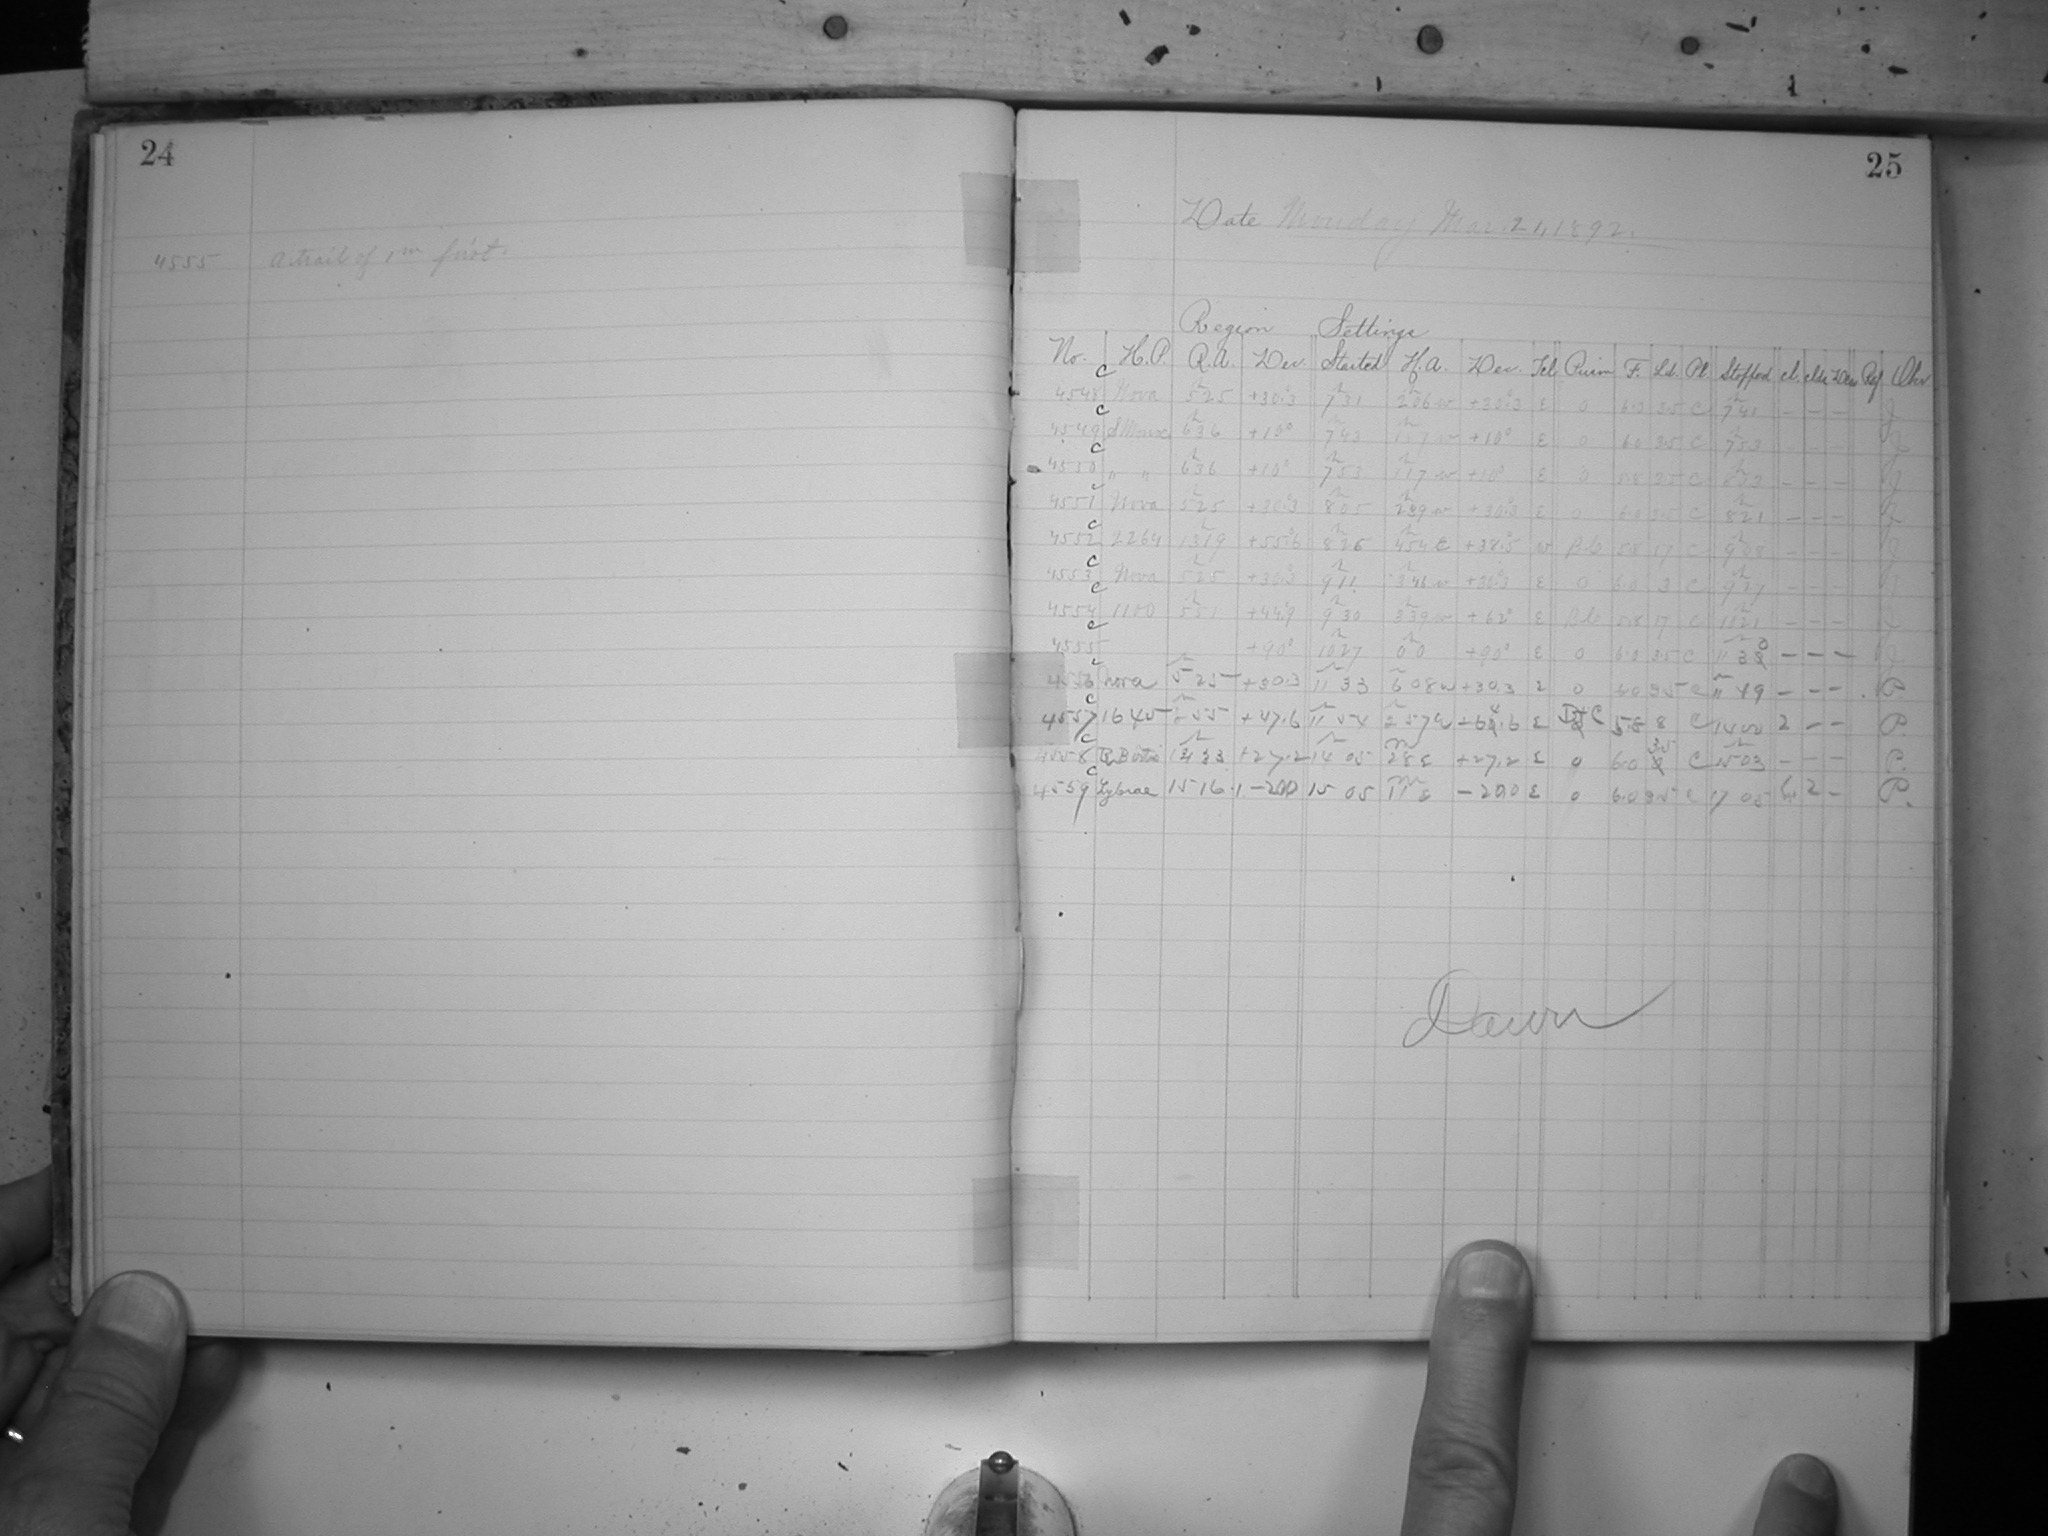 24
4555 A trail of 1m first.
25
Date Monday Mar. 21, 1892.
Region Settings
No. H.P. R.A. Dec. Started H.A. Dec. Tel. Prism F. Ld. Pl. Stopped cl. Dew Ref Obs
c
4548 Nova 5h 25 +30.3 7h 31 2h 06 w +30.3 E 0 6.0 3.5 C 7h 41 - - - J
c
4549 6h 36 +10° 7h 43 1h 07 w +10° E 0 6.0 3.5 C 7h 53 - - - J
c
4550 " " 6h 36 +10° 7h 53 1h 17 w +10° E 0 5.8 3.5 C - - - J
c
4551 Nova 5h 25 +30.3 8h 05 2h 39 w +30.3 E 0 6.0 3.5 C 8h 21 - - - J
c
4552 2264 13h 19 +55.6 8h 26 4h 54 E +38.5 w 5.8 17 C 9h 08 - - - J
c
4553 Nova 5h 25 +30.3 9h 11 3h 46 w +30.3 E 0 6.0 3 C 9h 27 - - - J
c
4554 1100 5h 51 +44.9 9h 30 3h 39 w +62° E 5.8 17 C - - - J
c
4555 +90° 10h 27 0h 0 +90° E 0 6.0 3.5 C 11h 30 - - - J
c
4556 Nova 5h 25 +30.3 11h 33 6h 08 w +30.3 E 0 6.0 3.5 C 11h 49 - - - P
c
4557 1645 +47.6 11h 54 2h 57 w +64.6 E C 5.8 8 C 14 00 2 - - P.
c
4558 14h 33 +27.2 14h 05 28m E +27.2 E 0 6.0 3.5 C 15h 03 - - - P.
c
4559 Lybrae 15 16.1 -20.0 15 05 11m E -20.0 E 0 6.0 3.5 C 17 05 2 - P.
Dawn